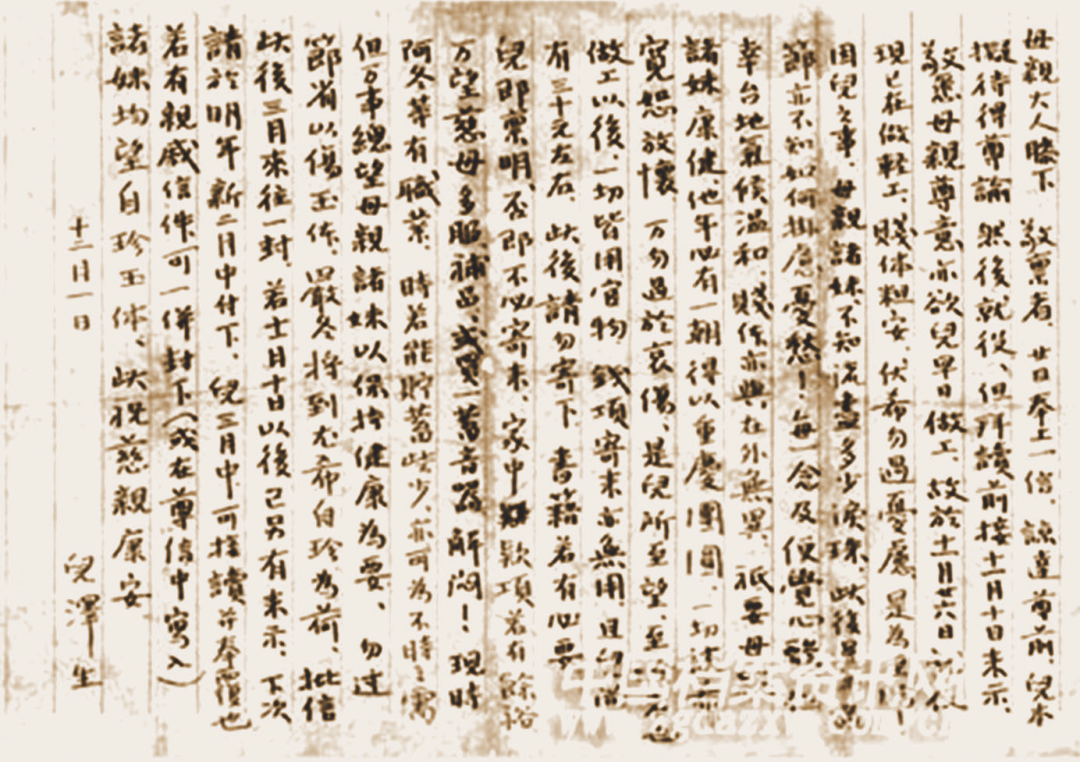 母親大人膝下 敬稟者、廿日奉上一信、諒達尊前、兒本
擬待得尊諭然後就役、但所讀前接十一月十日來示、
敬悉母親尊意亦欲兒早日做工、故於十一月廿六日
現已在做輕工、賤体粗安、伏希勿過憂慮、是為
因兒之事、母親諸妹、不知流盡多少淚珠、此後
節亦不知如何掛慮憂愁！每一念及便覺心酸、
幸台地氣候溫和、賤体亦與在外無異、祇要母
諸妹康健、他年必有一朝得以重慶團圓、一切
寬恕放懷、万勿過於哀傷、是兒所至望、至
做工以後、一切皆用官物、錢項寄來亦無用、且
有三十元左右、此後請勿寄下、書籍若有必要
兒即稟明、否即不必寄來、家中 欵項若有餘裕
万望慈母多服補品、或買一蓄音器解悶！現時
阿冬等有職業、時若能貯蓄些少、亦可為不時之需
但万事總望母親諸妹以保持健康為要、勿过
節省以傷玉体、嚴冬將到尤希自珍為荷、批信
此後三月來往一封、若十一月十日以後已另有來示、下次
請於明年新二月中付下、兒三月中可接讀並奉覆也
若有親戚信件可一併封下(或在尊信中寫入)
諸妹均望自珍玉体、此祝慈親康安
兒澤生
十二月一日